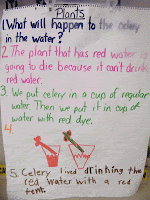 Plants
1. What will happen to the celery
in the water?
2. The plant that has red water is
going to die because it can't drink
red water.
3. We put celery in a cup of regular
water. Then we put it in cup of
water with red dye.
4.
5. Celery lived drinking the
red water with a red